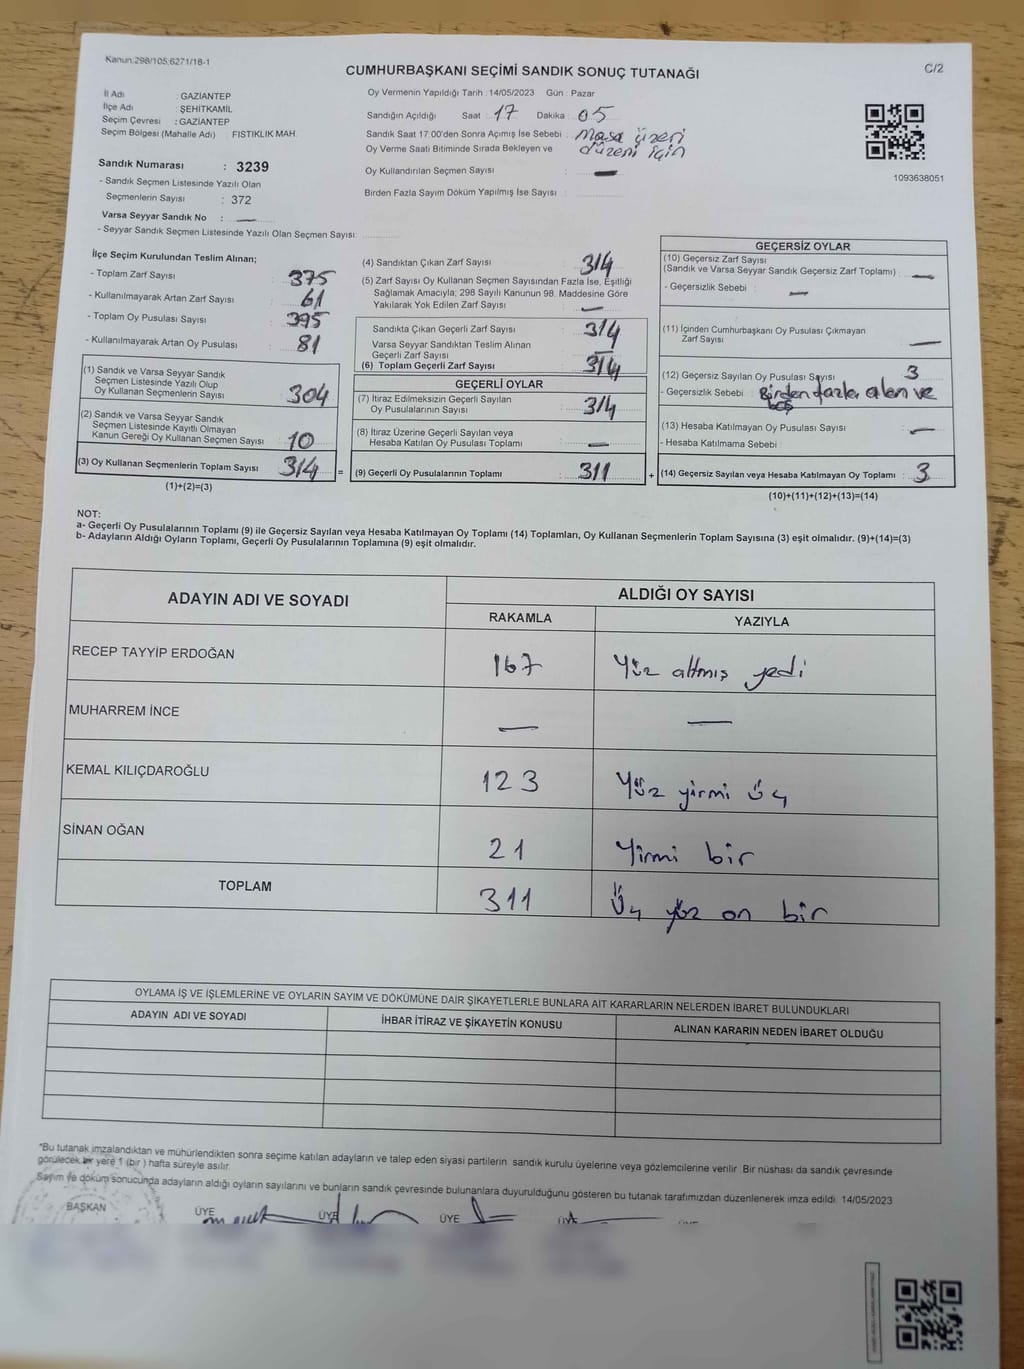 Kanun:298/105;6271/18-1
C/2
CUMHURBAŞKANI SEÇİMİ SANDIK SONUÇ TUTANAĞI
İl Adı : GAZİANTEP
İlçe Adı : ŞEHİTKAMİL
Seçim Çevresi : GAZİANTEP
Seçim Bölgesi (Mahalle Adı) : FISTIKLIK MAH.
Sandık Numarası : 3239
- Sandık Seçmen Listesinde Yazılı Olan
Seçmenlerin Sayısı : 372
Varsa Seyyar Sandık No : —
- Seyyar Sandık Seçmen Listesinde Yazılı Olan Seçmen Sayısı:
Oy Vermenin Yapıldığı Tarih : 14/05/2023 Gün : Pazar
Sandığın Açıldığı Saat : 17 Dakika : 05
Sandık Saat 17:00'den Sonra Açımış İse Sebebi : Masa üzeri
düzeni için
Oy Verme Saati Bitiminde Sırada Bekleyen ve
Oy Kullandırılan Seçmen Sayısı : —
Birden Fazla Sayım Döküm Yapılmış İse Sayısı :
1093638051
İlçe Seçim Kurulundan Teslim Alınan;
- Toplam Zarf Sayısı : 375
- Kullanılmayarak Artan Zarf Sayısı : 61
- Toplam Oy Pusulası Sayısı : 395
- Kullanılmayarak Artan Oy Pusulası : 81
(1) Sandık ve Varsa Seyyar Sandık
Seçmen Listesinde Yazılı Olup
Oy Kullanan Seçmenlerin Sayısı : 304
(2) Sandık ve Varsa Seyyar Sandık
Seçmen Listesinde Kayıtlı Olmayan
Kanun Gereği Oy Kullanan Seçmen Sayısı : 10
(3) Oy Kullanan Seçmenlerin Toplam Sayısı : 314 =
(1)+(2)=(3)
(4) Sandıktan Çıkan Zarf Sayısı : 314
(5) Zarf Sayısı Oy Kullanan Seçmen Sayısından Fazla İse, Eşitliği
Sağlamak Amacıyla; 298 Sayılı Kanunun 98. Maddesine Göre
Yakılarak Yok Edilen Zarf Sayısı : —
Sandıkta Çıkan Geçerli Zarf Sayısı : 314
Varsa Seyyar Sandıktan Teslim Alınan
Geçerli Zarf Sayısı : —
(6) Toplam Geçerli Zarf Sayısı : 314
GEÇERLİ OYLAR
(7) İtiraz Edilmeksizin Geçerli Sayılan
Oy Pusulalarının Sayısı : 314
(8) İtiraz Üzerine Geçerli Sayılan veya
Hesaba Katılan Oy Pusulası Toplamı : —
(9) Geçerli Oy Pusulalarının Toplamı : 311 +
GEÇERSİZ OYLAR
(10) Geçersiz Zarf Sayısı
(Sandık ve Varsa Seyyar Sandık Geçersiz Zarf Toplamı) : —
- Geçersizlik Sebebi : —
(11) İçinden Cumhurbaşkanı Oy Pusulası Çıkmayan
Zarf Sayısı : —
(12) Geçersiz Sayılan Oy Pusulası Sayısı : 3
- Geçersizlik Sebebi : Birden fazla alan ve
boş
(13) Hesaba Katılmayan Oy Pusulası Sayısı : —
- Hesaba Katılmama Sebebi :
(14) Geçersiz Sayılan veya Hesaba Katılmayan Oy Toplamı : 3
(10)+(11)+(12)+(13)=(14)
NOT:
a- Geçerli Oy Pusulalarının Toplamı (9) ile Geçersiz Sayılan veya Hesaba Katılmayan Oy Toplamı (14) Toplamları, Oy Kullanan Seçmenlerin Toplam Sayısına (3) eşit olmalıdır. (9)+(14)=(3)
b- Adayların Aldığı Oyların Toplamı, Geçerli Oy Pusulalarının Toplamına (9) eşit olmalıdır.
ADAYIN ADI VE SOYADI
ALDIĞI OY SAYISI
RAKAMLA YAZIYLA
RECEP TAYYİP ERDOĞAN 167 Yüz altmış yedi
MUHARREM İNCE — —
KEMAL KILIÇDAROĞLU 123 Yüz yirmi üç
SİNAN OĞAN 21 Yirmi bir
TOPLAM 311 Üç yüz on bir
OYLAMA İŞ VE İŞLEMLERİNE VE OYLARIN SAYIM VE DÖKÜMÜNE DAİR ŞİKAYETLERLE BUNLARA AİT KARARLARIN NELERDEN İBARET BULUNDUKLARI
ADAYIN ADI VE SOYADI İHBAR İTİRAZ VE ŞİKAYETİN KONUSU ALINAN KARARIN NEDEN İBARET OLDUĞU
*Bu tutanak imzalandıktan ve mühürlendikten sonra seçime katılan adayların ve talep eden siyasi partilerin sandık kurulu üyelerine veya gözlemcilerine verilir. Bir nüshası da sandık çevresinde
görülecek bir yere 1 (bir) hafta süreyle asılır.
Sayım ve döküm sonucunda adayların aldığı oyların sayılarını ve bunların sandık çevresinde bulunanlara duyurulduğunu gösteren bu tutanak tarafımızdan düzenlenerek imza edildi. 14/05/2023
BAŞKAN ÜYE ÜYE ÜYE ÜYE